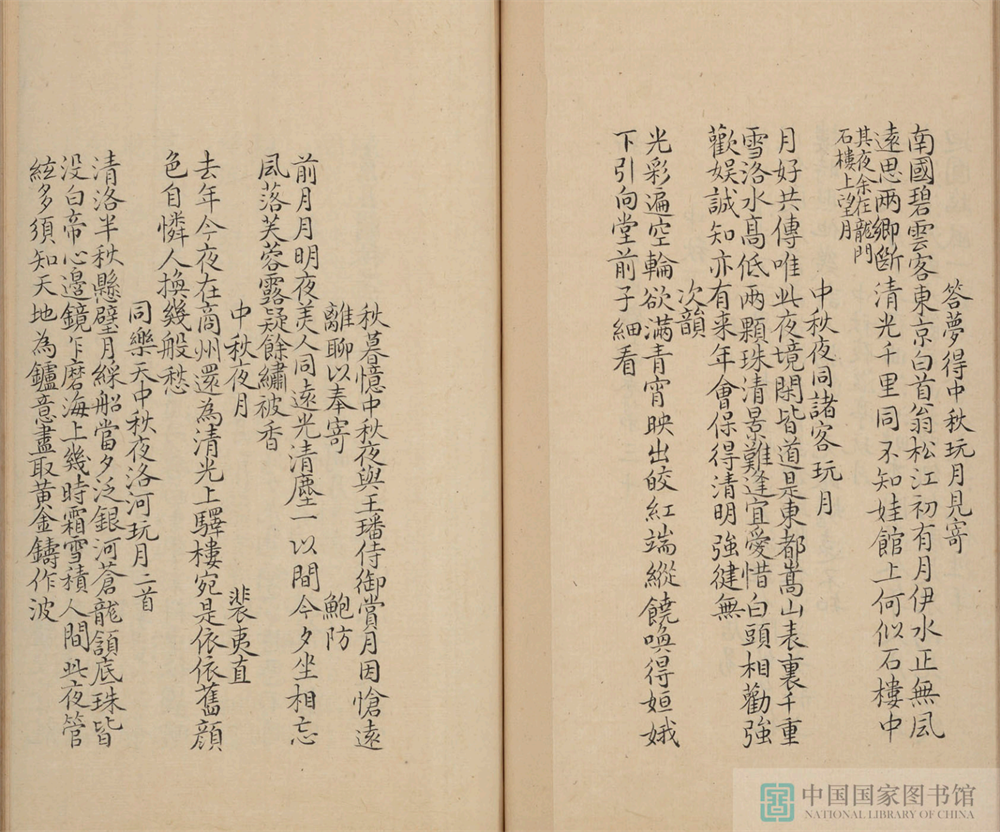 答夢得中秋玩月見寄
南國碧雲客東京白首翁松江初有月伊水正無風
遠思兩鄉斷清光千里同不知娃館上何似石樓中
其夜余在龍門
石樓上望月
中秋夜同諸客玩月
月好共傳唯此夜境閑皆道是東都嵩山表裏千重
雪洛水高低兩顆珠清景難逢宜愛惜白頭相勸強
歡娛誠知亦有来年會保得清明強健無
次韻
光彩遍空輪欲滿青宵映出皎紅端縱饒喚得姮娥
下引向堂前子細看
秋暮憶中秋夜與王璠侍御賞月因愴遠
離聊以奉寄
鮑防
前月月明夜美人同遠光清塵一以間今夕坐相忘
風落芙蓉露疑餘繡被香
中秋夜月
裴夷直
去年今夜在商州還為清光上驛樓宛是依依舊顔
色自憐人換幾般愁
同樂天中秋夜洛河玩月二首
清洛半秋懸璧月綵船當夕泛銀河蒼龍頷底珠皆
没白帝心邊鏡乍磨海上幾時霜雪積人間此夜管
絃多須知天地為鑪意盡取黃金鑄作波
中国国家图书馆
NATIONAL LIBRARY OF CHINA